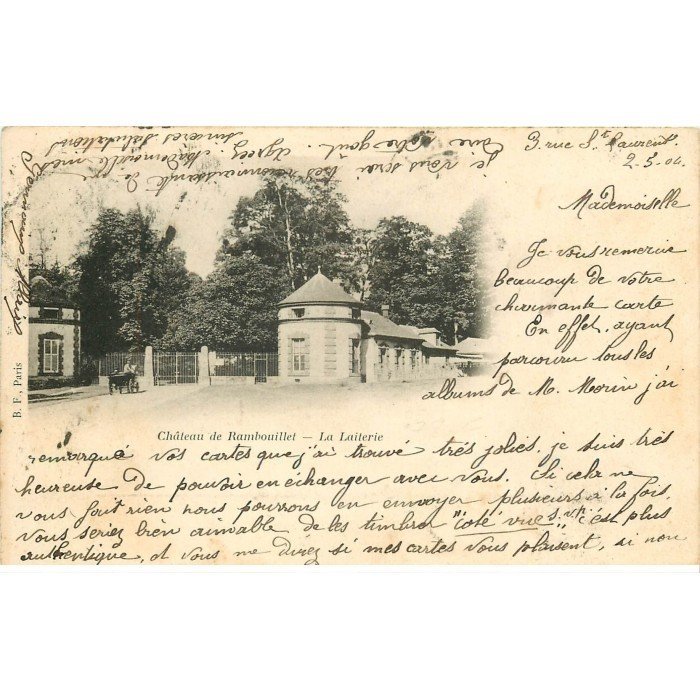 3 rue St Laurent.
2.5.04.
Mademoiselle
Je vous remercie
beaucoup de votre
charmante carte
En effet, ayant
parcouru tous les
albums de M. Morin j'ai
remarqué vos cartes que j'ai trouvé très jolies. je suis très
heureuse de pouvoir en échanger avec vous. Si cela ne
vous fait rien nous pourrons en envoyer plusieurs à la fois.
Vous seriez bien aimable de les timbrer "coté vue s.v.p." c'est plus
authentique, et vous me direz si mes cartes vous plaisent, si non
je vous serai
très reconnaissante de
votre goût. Agréez Mademoiselle mes
sincères salutations
Château de Rambouillet — La Laiterie
B. F., Paris